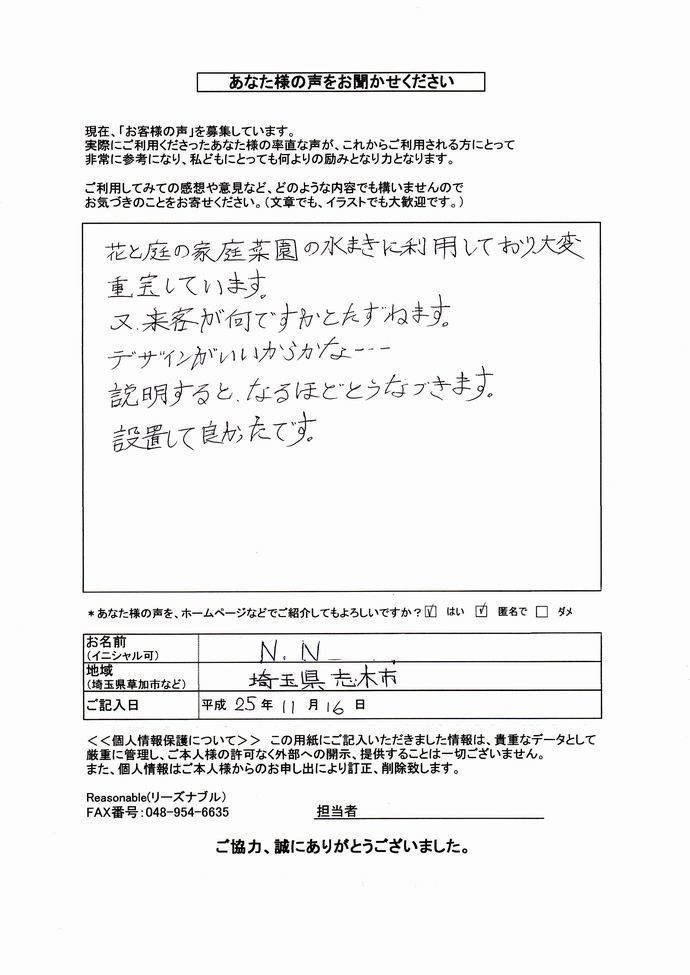 あなた様の声をお聞かせください
現在、「お客様の声」を募集しています。
実際にご利用くださったあなた様の率直な声が、これからご利用される方にとって
非常に参考になり、私どもにとっても何よりの励みとなり力となります。
ご利用してみての感想や意見など、どのような内容でも構いませんので
お気づきのことをお寄せください。（文章でも、イラストでも大歓迎です。）
花と庭の家庭菜園の水まきに利用しており大変
重宝しています。
又、来客が何ですかとたずねます。
デザインがいいからかな---
説明すると、なるほどとうなづきます。
設置して良かたです。
*あなた様の声を、ホームページなどでご紹介してもよろしいですか？ ☑ はい ☑ 匿名で □ ダメ
お名前
（イニシャル可） N.N
地域
（埼玉県草加市など） 埼玉県 志木市
ご記入日 平成 25 年 11 月 16 日
<<個人情報保護について>> この用紙にご記入いただきました情報は、貴重なデータとして
厳重に管理し、ご本人様の許可なく外部への開示、提供することは一切ございません。
また、個人情報はご本人様からのお申し出により訂正、削除致します。
Reasonable(リーズナブル)
FAX番号：048-954-6635 担当者
ご協力、誠にありがとうございました。